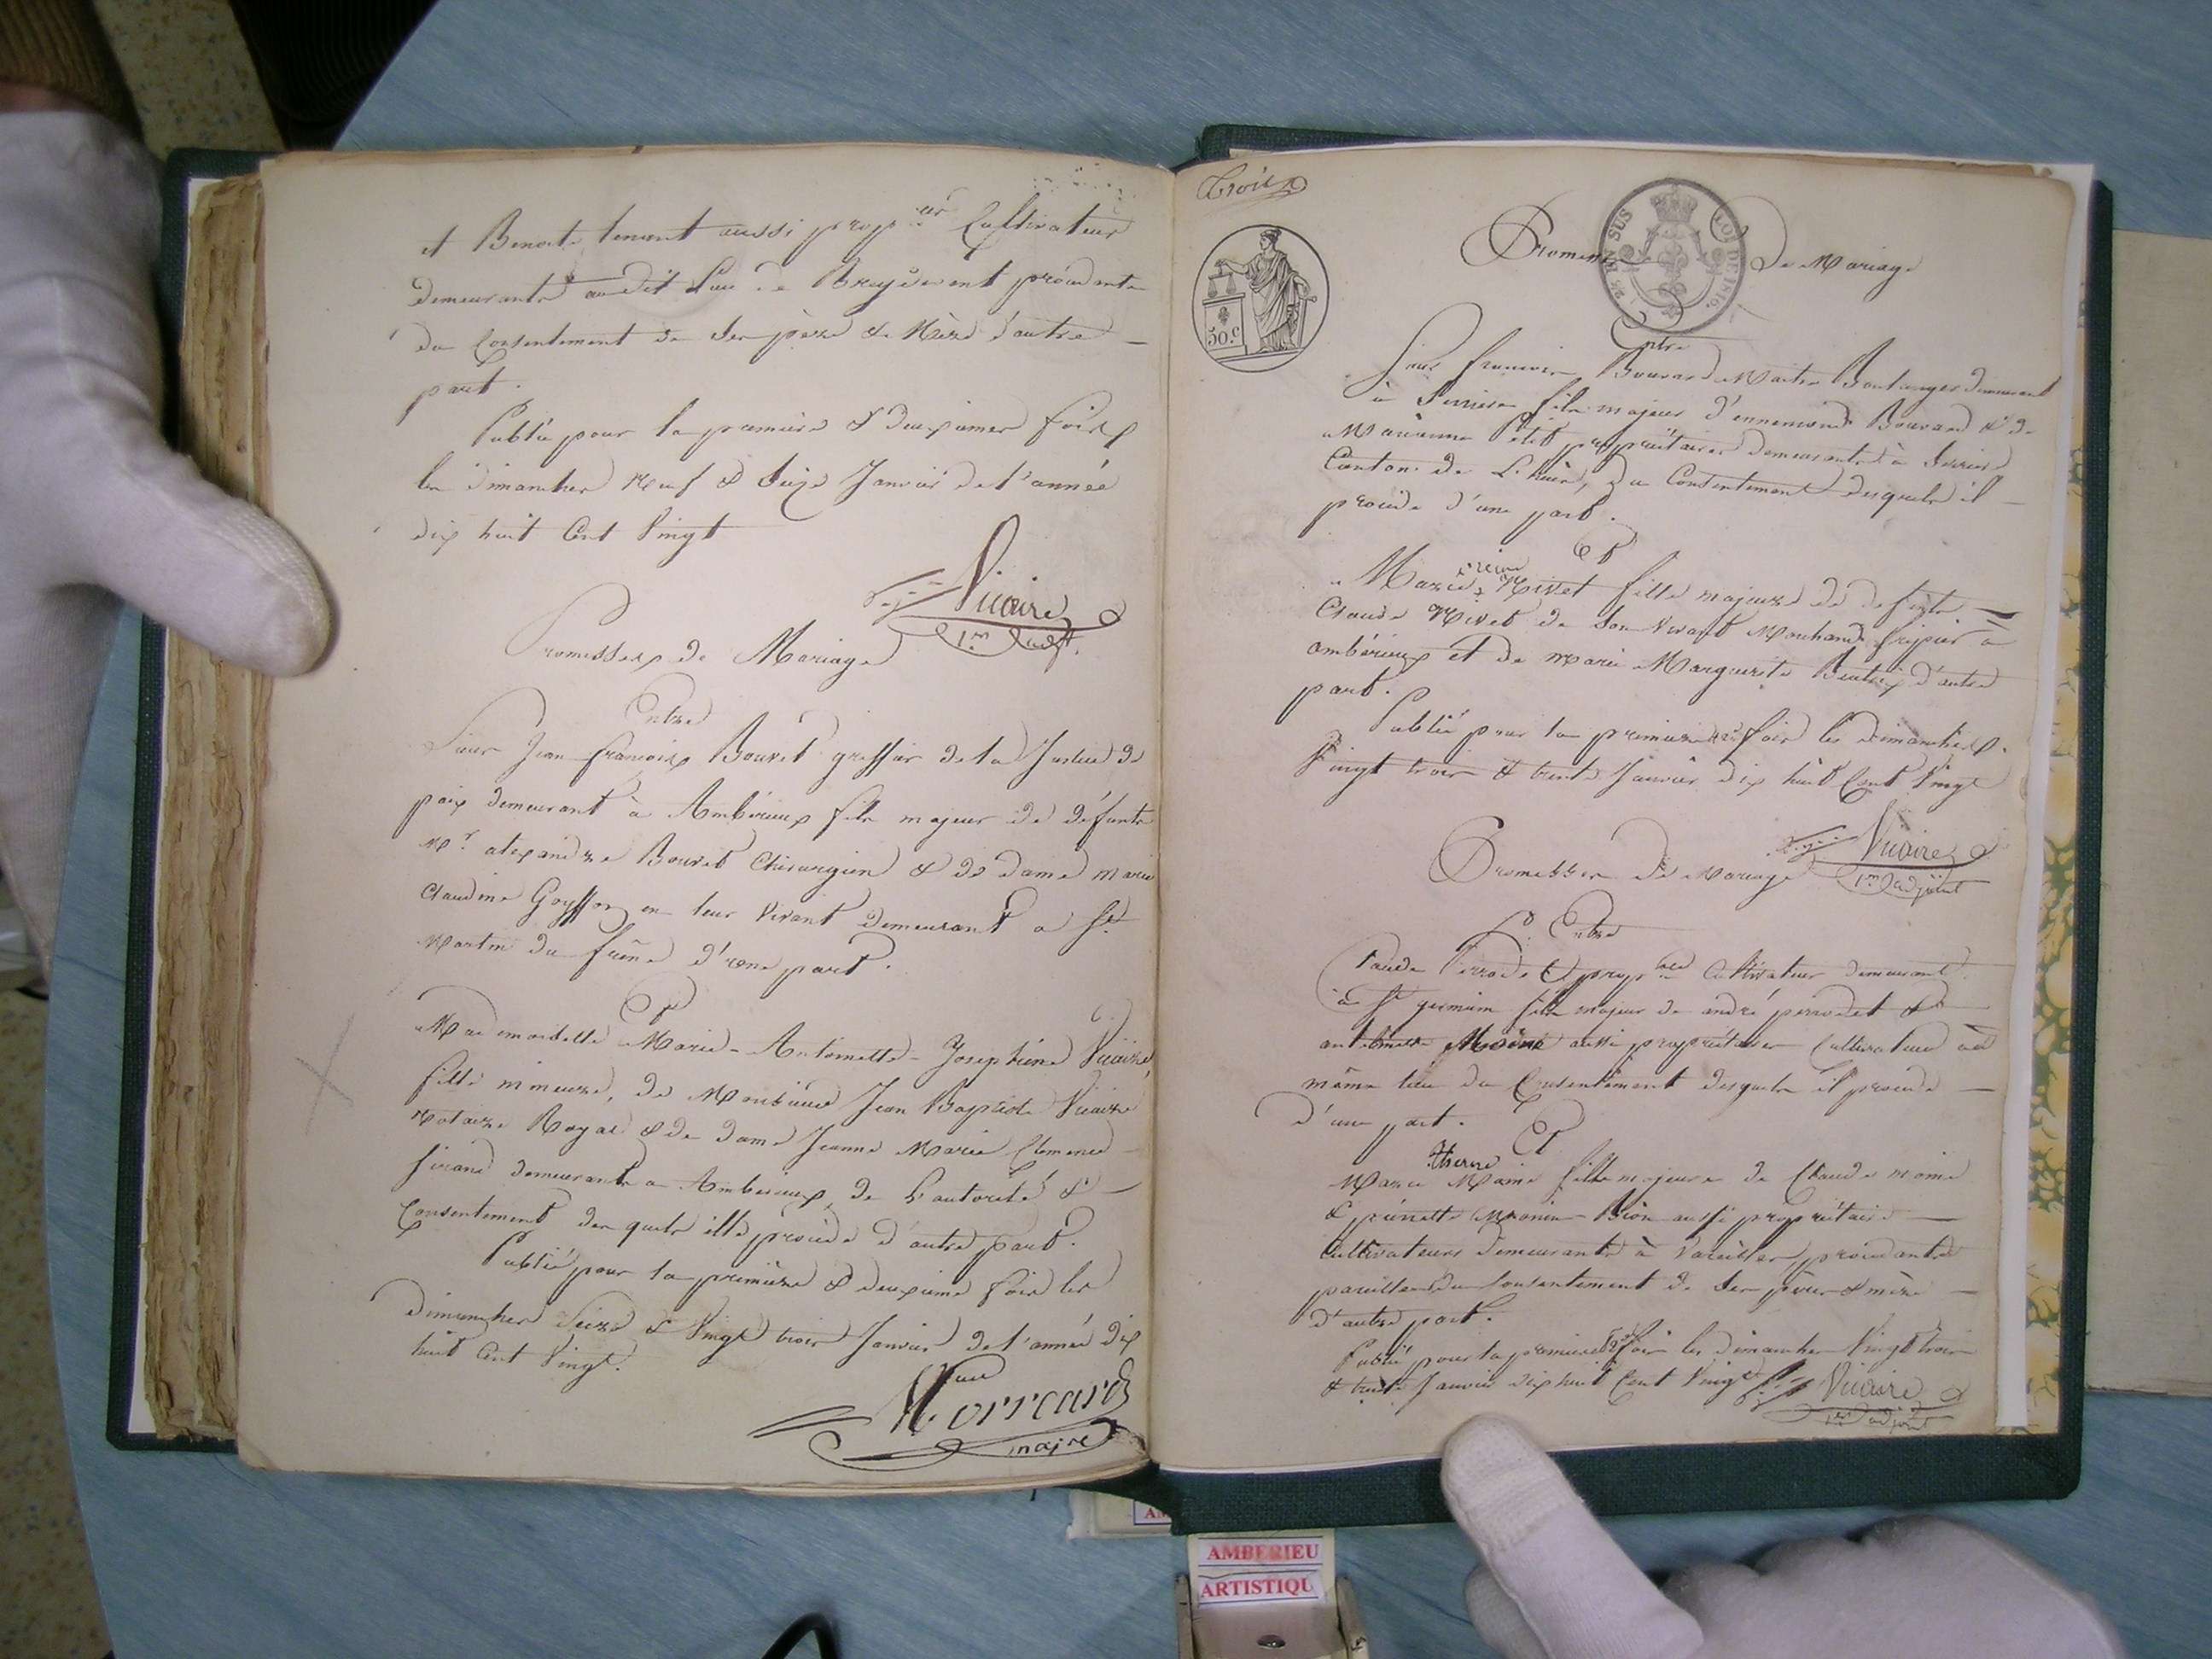 et Benoite tenant aussi prop.res Cultivateurs
demeurants audit lieu de Bruyère et procédante
du Consentement de ses père & Mère d'autre
part.
Publié pour la premiere & deuxiemes fois
les dimanches Neuf & Seize Janvier de l'année
dix huit Cent Vingt
Vicaire
1.er adjt.
Promesses de Mariage
Entre
Sieur Jean françois Bouvet greffier de la Justice de
paix demeurant à Ambérieux fils majeur de défunts
Mr. alexandre Bouvet Chirurgien & de dame marie
Claudine Goyffon en leur Vivant demeurant a St.
Martin du frêne d'une part.
Et
Mademoiselle Marie-Antoinette-Josephine Vicaire,
fille mineure, de Monsieur Jean Baptiste Vicaire
Notaire Royal & de dame Jeanne Marie Clemence
sirand demeurants a Ambérieux, de L'autorité &
Consentement des quels elle procède d'autre part.
Publié pour la première & deuxieme fois les
dimanches Seize & Vingt trois Janvier de l'année dix
huit Cent Vingt.
Morrcard
maire
Trois
EN SUS LOI DE 1816.
50.c
Promesse de Mariage
Entre
Sieur francois Bouvard Maitre Boulanger demeurant
à Serrieres fils majeur d'ennemond Bouvard & de
Marianne Petit propriétaires demeurants à Serrieres
Canton de L'huis, du Consentement desquels il
procède d'une part.
Et
reine
Marie Nivet fille majeure de defunt
Claude Nivet de Son Vivant Marchand fripier à
ambérieux et de marie Marguerite Beatrix d'autre
part.
Publié pour la premiere & 2e fois les dimanches
Vingt trois & trente Janvier dix huit Cent Vingt
Vicaire
1er adjoint
Promesses de Mariage
Entre
Claude Perrodet prop.re Cultivateur demeurant
à St germain fils majeur de andré perrodet &
antelmette Moine aussi propriétaires Cultivateurs au
même lieu du Consentement desquels il procède
d'une part.
Et
therese
Marie Moine fille majeure de Claude moine
& pierrette Bion aussi propriétaires
Cultivateurs demeurants à Vareilles, procédante
pareillement du Consentement de Ses père & mère
d'autre part.
Publié pour la premiere & 2e fois les dimanches Vingt trois
& trente Janvier dix huit Cent Vingt Vicaire
1er adjoint
AMBERIEU
ARTISTIQU